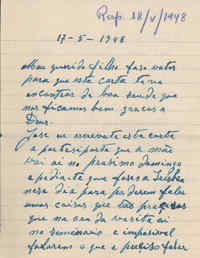 Resp. 18/V/1948
17-5-1948
Meu querido filho faso votos
para que esta carta te va
encontrar de boa saude que
nos ficamos bem graças a
Deus.
José esta carta
a participarte que a mãe
vai ai no proximo domingo
a pedia-te que
nese dia para poderem falar
umas coisas que
que na ora da vesita ai
no seminario e impusivel
falarem o que a preciso fazer